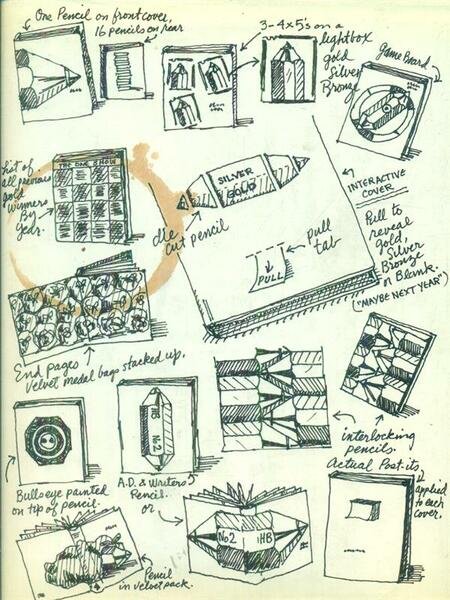 One Pencil on front cover,
16 pencils on rear
3-4x5's on a
lightbox
gold
Silver
Bronze
Game Board
List of
all previous
gold
Winners
By
Year.
THE ONE SHOW
SILVER
GOLD
die
cut pencil
pull
tab
PULL
INTERACTIVE
COVER
Pull to
reveal
gold,
Silver
Bronze
or Blank.
("MAYBE NEXT YEAR")
End pages
Velvet medal bags stacked up.
interlocking
pencils.
Bullseye painted
on tip of pencil.
HB
No2
A.D. & Writers
Pencil.
or
No2
HB
Actual Post-its
applied
to each
cover.
Pencil
in velvet pack.